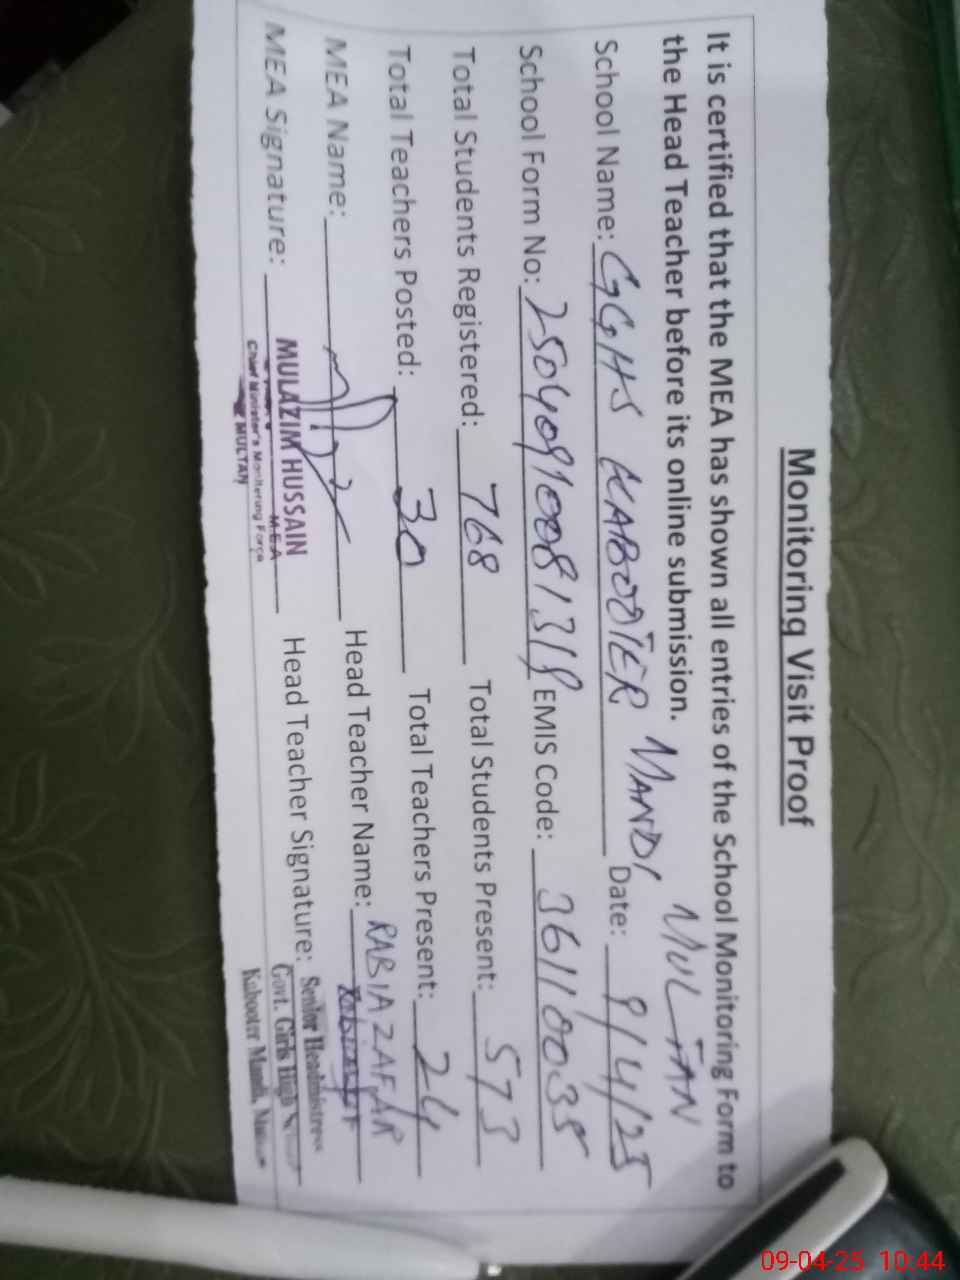 Monitoring Visit Proof
It is certified that the MEA has shown all entries of the School Monitoring Form to
the Head Teacher before its online submission.
School Name: GGHS KABOOTER MANDI MULTAN Date: 9/4/25
School Form No: EMIS Code: 36110035
Total Students Registered: 768 Total Students Present: 573
Total Teachers Posted: 30 Total Teachers Present: 24
MEA Name: Head Teacher Name: RABIA ZAFAR
MEA Signature: MULAZIM HUSSAIN Head Teacher Signature:
M.E.A
Chief Minister's Monitering Force
MULTAN
Senior Headmistress
Govt. Girls High
Kabooter Mandi,
09-04-25 10:44